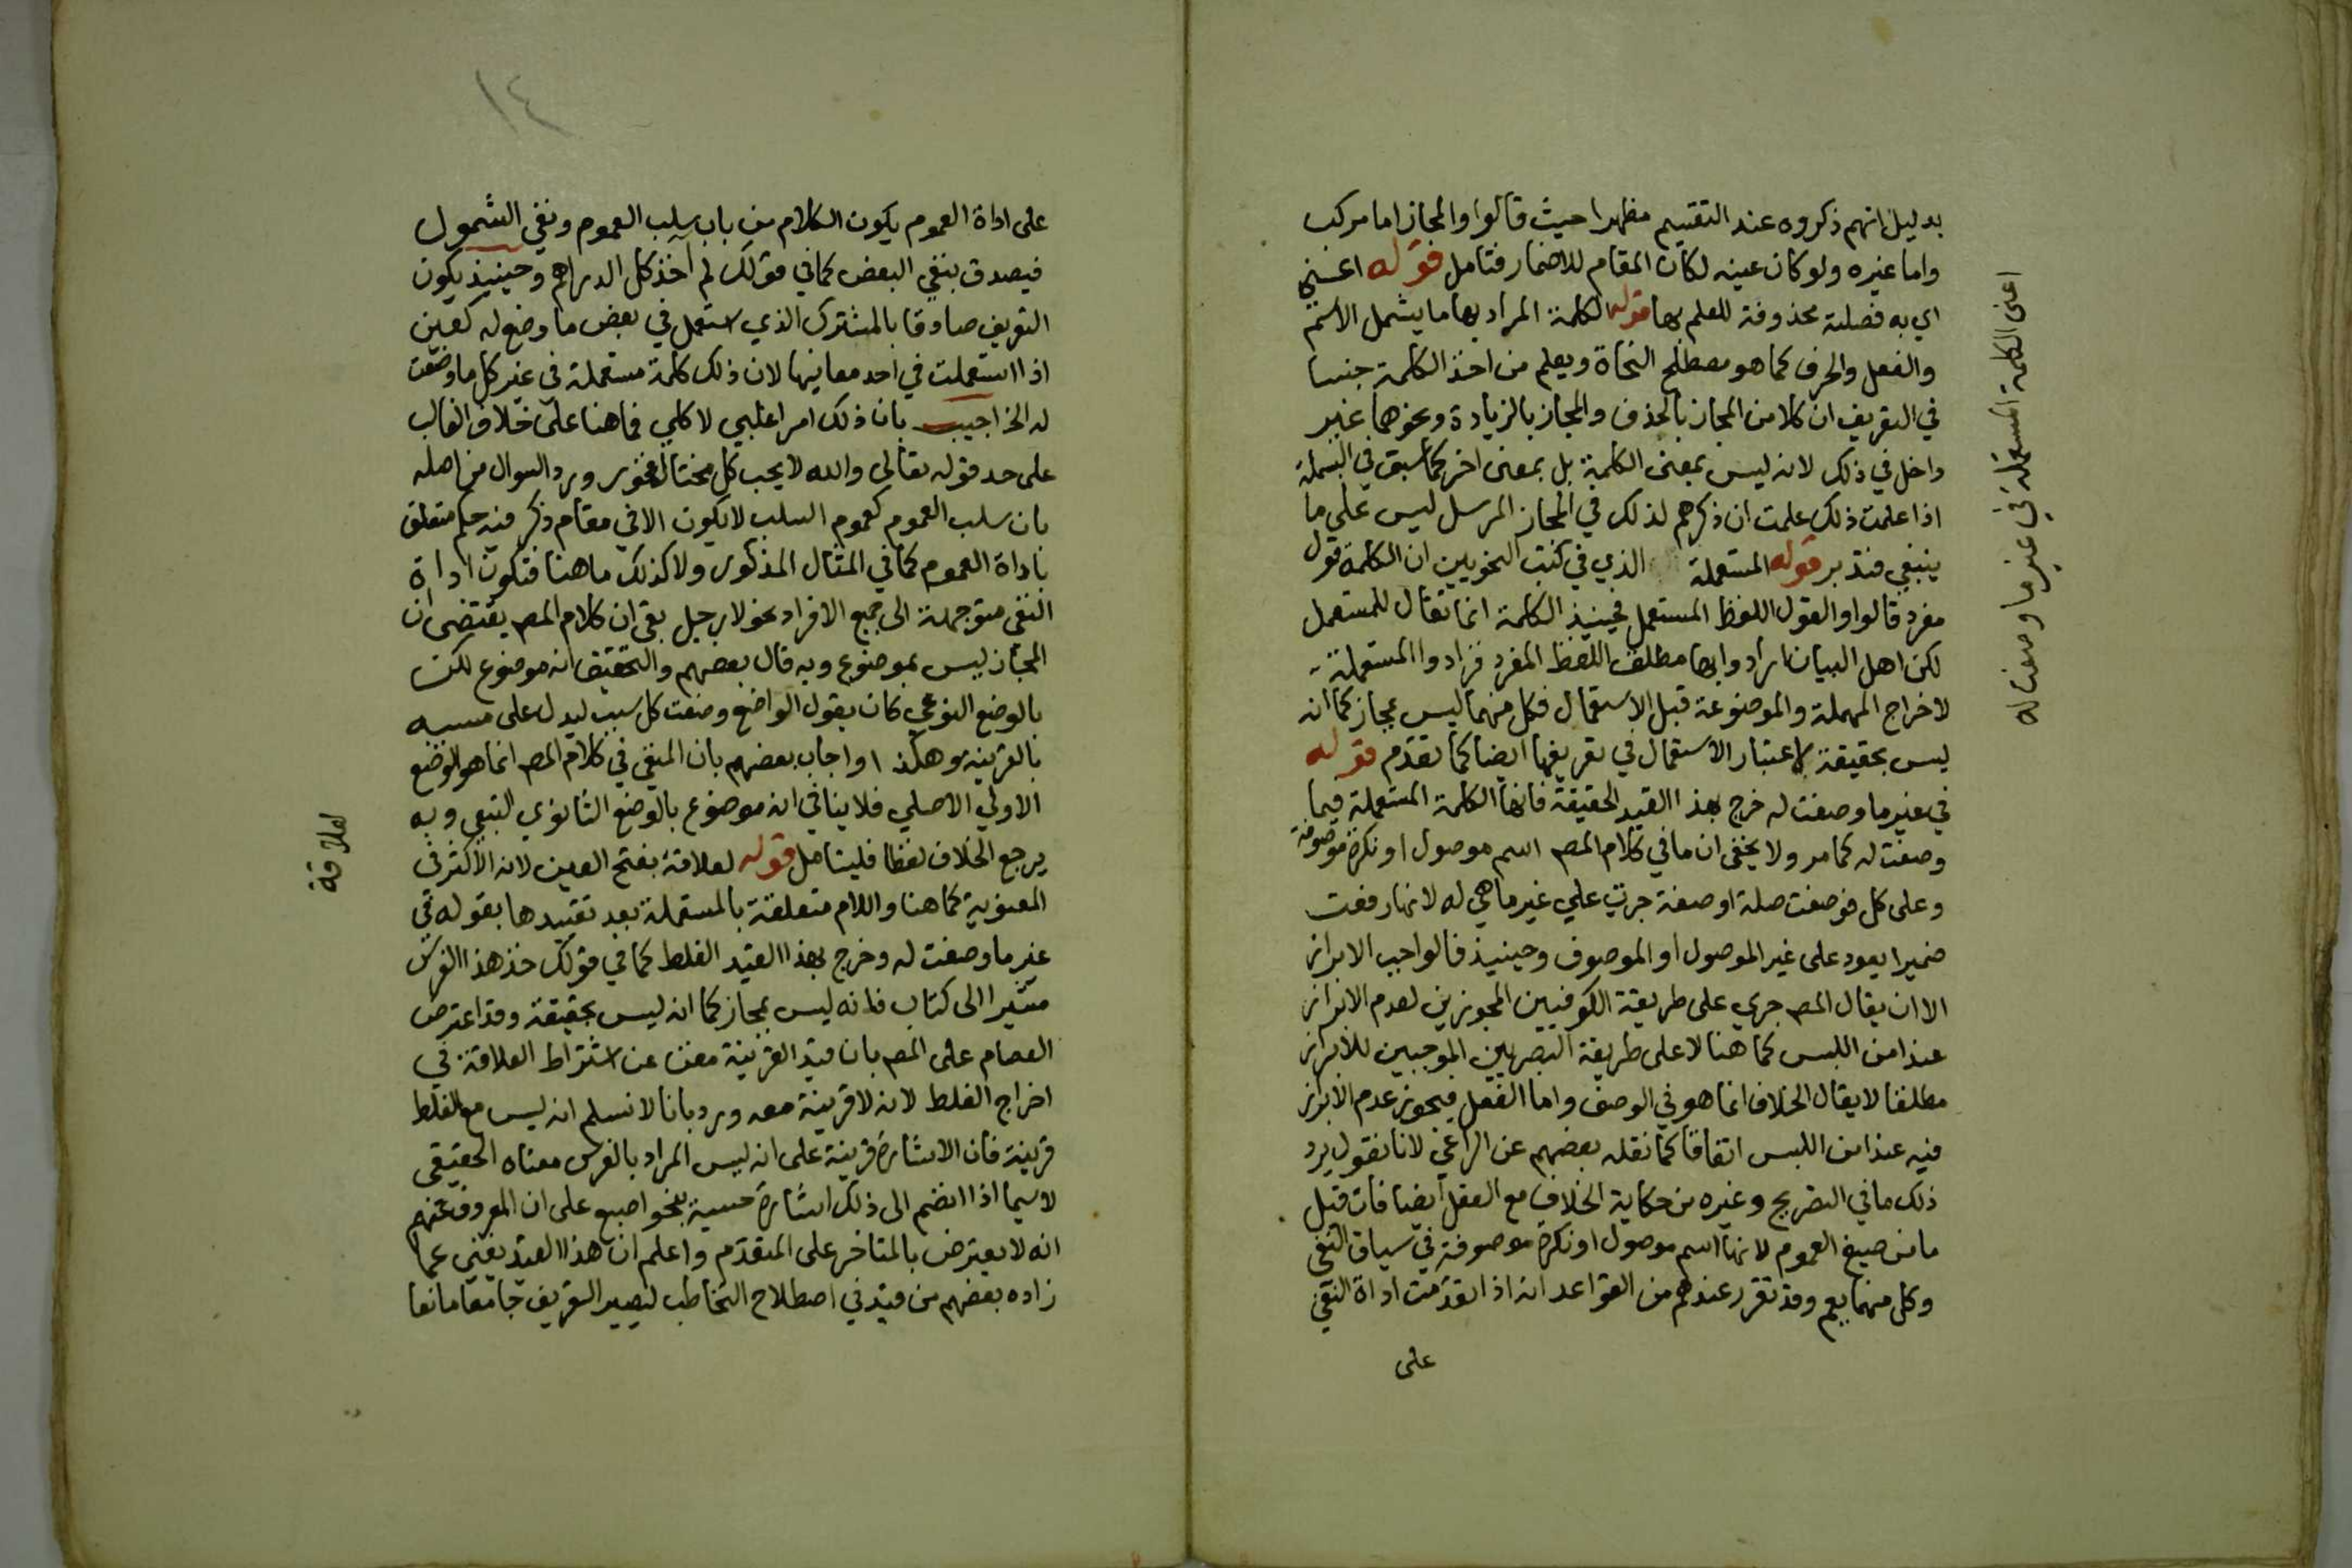 بدليل انهم ذكروه عند التقسيم مظهرا حيث قالوا والمجاز اما مركب
واما غيره ولو كان عينه لكان المقام للاضمار فتامل قوله اعني
اي به فضلية محذوفة للعلم بها قوله الكلمة المراد بها ما يشمل الاسم
والفعل والحرف كما هو مصطلح النحاة ويعلم من اخذ الكلمة جنسا
في التعريف ان كلا من المجاز بالحذف والمجاز بالزيادة ونحوهما غير
داخل في ذلك لانه ليس بمعنى الكلمة بل بمعنى اخر كما سبق في البسملة
اذا علمت ذلك علمت ان ذكرهم لذلك في المجاز المرسل ليس على ما
ينبغي فتدبر قوله المستعملة الذي في كتب النحويين ان الكلمة قول
مفرد قالوا والقول اللفظ المستعمل فحينيذ الكلمة انما تقال للمستعمل
لكن اهل البيان ارادوا بها مطلق اللفظ المفرد فزادوا المستعملة
لاخراج المهملة والموضوعة قبل الاستعمال فكل منهما ليس بمجاز كما انه
ليس بحقيقة لاعتبار الاستعمال في تعريفها ايضا كما تقدم قوله
في غير ما وضعت له خرج بهذا القيد الحقيقة فانها الكلمة المستعملة فيما
وضعت له كما مر ولا يخفى ان ما في كلام المص اسم موصول او نكرة موصوفة
وعلى كل فوضعت صلة او صفة جرت علي غير ما هي له لانها رفعت
ضميرا يعود على غير الموصول او الموصوف وحينيذ فالواجب الابراز
الا ان يقال المص جري على طريقة الكوفيين المجوزين لعدم الابراز
عند امن اللبس كما هنا لا على طريقة البصريين الموجبين للابراز
مطلقا لا يقال الخلاف انما هو في الوصف واما الفعل فيجوز عدم الابراز
فيه عند امن اللبس اتفاقا كما نقله بعضهم عن الراعي لانا نقول يرد
ذلك ما في التصريح وغيره من حكاية الخلاف مع الفعل ايضا فان قيل
ما من صيغ العموم لانها اسم موصول او نكرة موصوفة في سياق النفي
وكل منهما يعم وقد تقرر عندهم من القواعد انه اذا تقدمت اداة النفي
على
اعني الكلمة المستعملة في غير ما وضعت له
١٤
على اداة العموم يكون الكلام من باب سلب العموم ونفي الشمول
فيصدق بنفي البعض كما في قولك لم آخذ كل الدراهم وحينيذ يكون
التعريف صادقا بالمشترك الذي استعمل في بعض ما وضع له كعين
اذا استعملت في احد معانيها لان ذلك كلمة مستعملة في غير كل ما وضعت
له الخ اجيب بان ذلك امر اغلبي لا كلي فما هنا على خلاف الغالب
على حد قوله تعالى والله لا يحب كل مختال فخور ورد السوال من اصله
بان سلب العموم كعموم السلب لا يكون الا في مقام ذكر فيه حكم متعلق
باداة العموم كما في المثال المذكور ولا كذلك ما هنا فتكون اداة
النفي متوجهة الى جميع الافراد نحو لا رجل بقي ان كلام المص يقتضي ان
المجاز ليس بموضوع وبه قال بعضهم والتحقيق انه موضوع لكن
بالوضع النوعي كان يقول الواضع وضعت كل سبب ليدل على مسببه
بالقرينة وهكذا واجاب بعضهم بان المنفي في كلام المص انما هو الوضع
الاولي الاصلي فلا ينافي انه موضوع بالوضع الثانوي التبعي وبه
يرجع الخلاف لفظا فليتامل قوله لعلاقة بفتح العين لانه الاكثر في
المعنوية كما هنا واللام متعلقة بالمستعملة بعد تقييدها بقوله في
غير ما وضعت له وخرج بهذا القيد الغلط كما في قولك خذ هذا الفرس
مشيرا الى كتاب فانه ليس بمجاز كما انه ليس بحقيقة وقد اعترض
العصام على المص بان قيد القرينة مغن عن اشتراط العلاقة في
اخراج الغلط لانه لا قرينة معه ورد بانا لا نسلم انه ليس مع الغلط
قرينة فان الاشارة قرينة على انه ليس المراد بالفرس معناه الحقيقي
لا سيما اذا انضم الى ذلك اشارة حسية بنحو اصبع على ان المعروف عنهم
انه لا يعترض بالمتاخر على المتقدم واعلم ان هذا القيد يغني عما
زاده بعضهم من قيد في اصطلاح التخاطب ليصير التعريف جامعا مانعا
لعلاقة